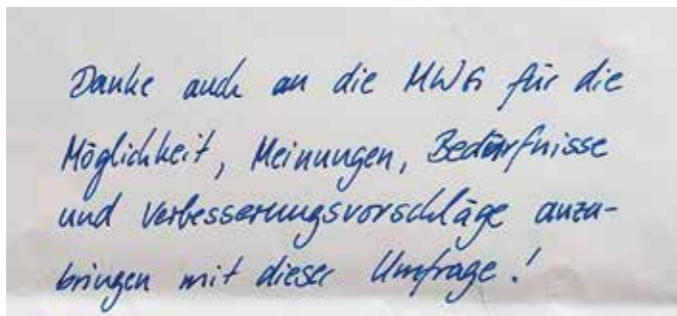 Danke auch an die MWG für die
Möglichkeit, Meinungen, Bedürfnisse
und Verbesserungsvorschläge anzu-
bringen mit dieser Umfrage!